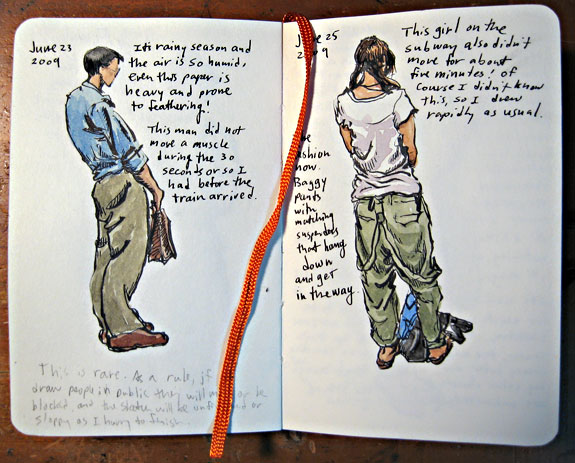 June 23
2009
It's rainy season and
the air is so humid,
even this paper is
heavy and prone
to feathering!
This man did not
move a muscle
during the 30
seconds or so I
had before the
train arrived.
This is rare. As a rule, if
draw people in public they will
blocked, and the statue will be or
sloppy as I hurry to finish.
June 25
2009
This girl on the
subway also didn't
move for about
five minutes! Of
course I didn't know
this, so I drew
rapidly as usual.
fashion
now.
Baggy
pants
with
matching
suspenders
that hang
down
and get
in the way.